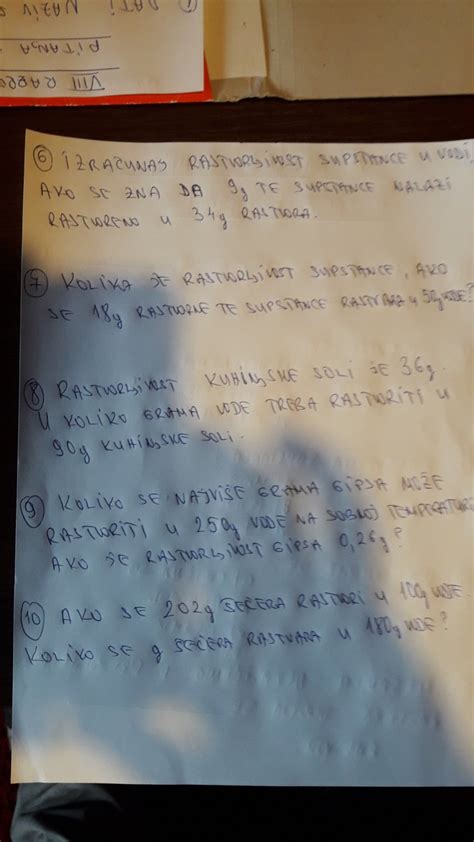 ① DATI NAZIV
PITANJA
VIII RAZRED
⑥ IZRAČUNAJ RASTVORLJIVOST SUPSTANCE U VODI,
AKO SE ZNA DA 9g TE SUPSTANCE NALAZI
RASTVORENO U 34g RASTVORA.
⑦ KOLIKA JE RASTVORLJIVOST SUPSTANCE, AKO
SE 18g RASTVORNE TE SUPSTANCE RASTVARA U 50g VODE?
⑧ RASTVORLJIVOST KUHINJSKE SOLI JE 36g.
U KOLIKO GRAMA VODE TREBA RASTVORITI U
90g KUHINJSKE SOLI.
⑨ KOLIKO SE NAJVIŠE GRAMA GIPSA MOŽE
RASTVORITI U 250g VODE NA SOBNOJ TEMPERATURI
AKO JE RASTVORLJIVOST GIPSA 0,26g?
⑩ AKO SE 202g ŠEĆERA RASTVORI U 100g VODE.
KOLIKO SE g ŠEĆERA RASTVARA U 180g VODE?